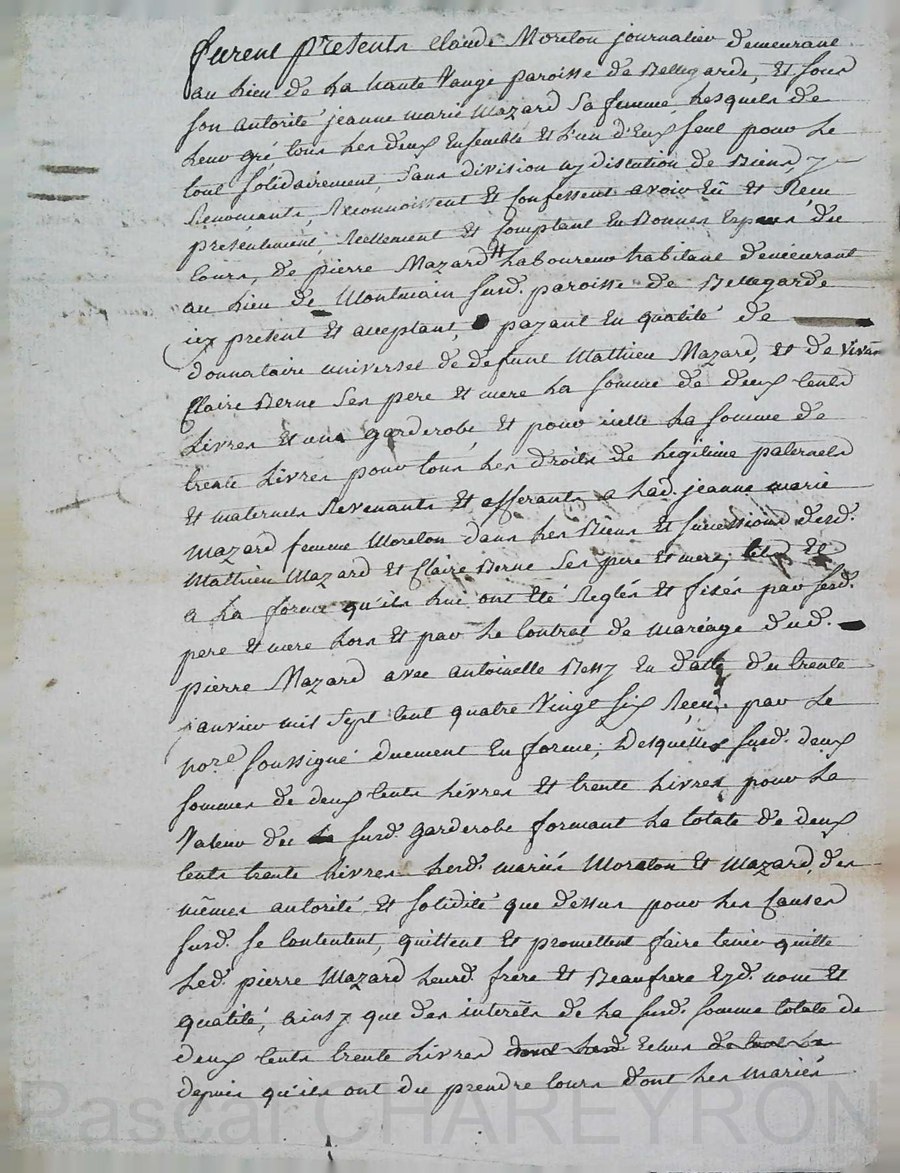 furent presents Claude Morelon journalier demeurant
au lieu de la haute Vange paroisse de Bellegarde, Et sous
son autorité jeanne marie Mazard Sa femme, Lesquels de
Leur gré tous Les deux Ensemble et L'un d'Eux seul pour Le
tout solidairement, sans division ny distution de Biens y
Renonçants, Reconnoissent et Confessent avoir Eü et Reçu
présentement, Réellement et Comptant En Bonnes Espèces du
Cours, de pierre Mazard Laboureur habitant demeurant
au Lieu de Montmain susd. paroisse de Bellegarde
icy présent et acceptant, payant En qualité de
donnataire universel de deffunt Mathieu Mazard, et de
Claire Berne Ses pere et mere La somme de deux Cents
Livres Et une garderobe, et pour icelle La somme de
trente Livres pour tous Les droits de Legitime paternels
Et maternels Revenants Et afferants a Lad. jeanne marie
Mazard femme Morelon dans Les Biens Et successions desd.
Mathieu Mazard Et Claire Berne Ses pere Et mere, tels Et
a La forme qu'ils Lui ont Eté Reglés et fixés par sesd.
pere Et mere Lors Et par Le Contrat de mariage dud.
pierre Mazard avec antoinette Bessy En datte du trente
janvier mil Sept Cent quatre Vingt Six Reçu par Le
nore. soussigné duement En forme; Desquelles susd. deux
sommes de deux Cents Livres et trente Livres pour La
Valeur de La susd. garderobe formant La totale de deux
Cents trente Livres Lesd. mariés Morelon Et Mazard, des
mêmes autorité et solidité que dessus pour Les Causes
susd. se Contentent, quittent Et promettent faire tenir quitte
Led. pierre Mazard Leurd. frere Et Beaufrere Esd. nom Et
qualité, ainsy que des interêts de La susd. somme totale de
deux Cents trente Livres Echus
depuis qu'ils ont du prendre Cours dont Les mariés
Pascal CHAREYRON